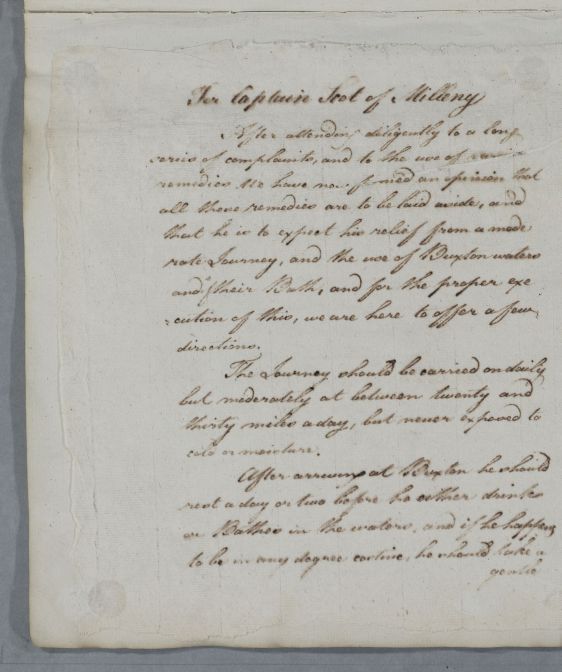 For Captain Scot of Milleny
After attending diligently to a long
series of complaints, and to the use of
remedies we have now formed an opinion that
all these remedies are to be laid aside, and
that he is to expect his relief from a mode
rate Journey, and the use of Buxton waters
and of their Bath, and for the proper exe
cution of this, we are here to offer a few
directions.
The Journey should be carried on daily
but moderately at between twenty and
thirty miles a day, but never exposed to
cold or moisture.
After arriving at Buxton he should
rest a day or two before he either drinks
or Bathes in the waters, and if he happens
to be in any degree costive, he should take a
gentle